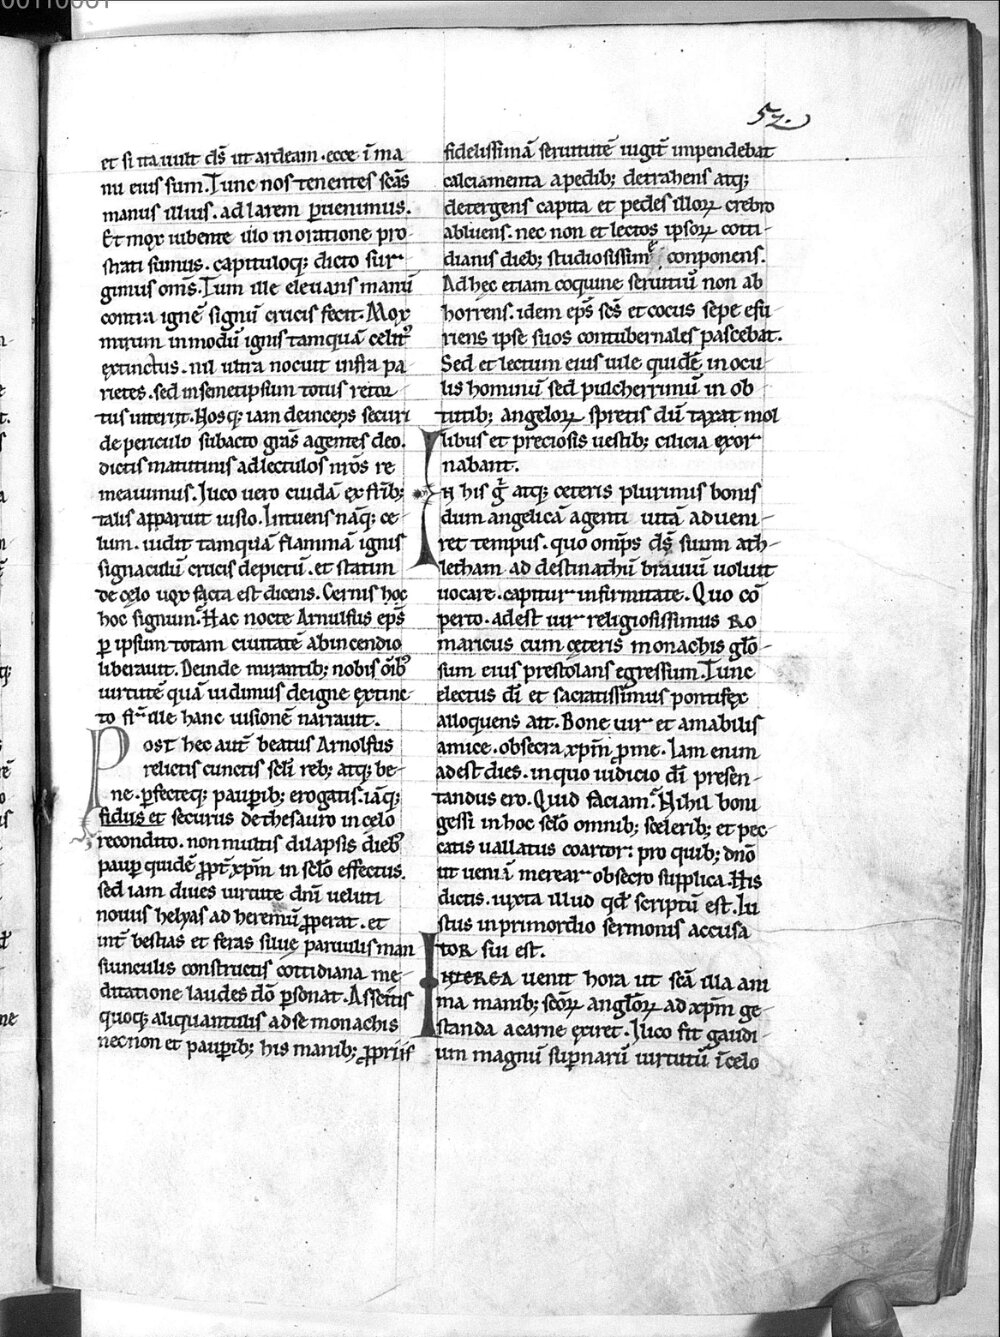 52.
et si ita uult ds̄ ut ardeam. ecce ī ma
nu eius sum. Tunc nos tenentes scās
manus illius. ad larem ꝑuenimus.
Et mox iubente illo in oratione pro
strati sumus. capituloq; dicto sur
gimus om̄s. Tum ille eleuans manū
contra ignē signū crucis fecit. Mox
mirum in modū ignis tamquā celit᷒
extinctus. nil ultra nocuit infra pa
rietes. sed in semetipsum totus retor
tus interiit. Nosq; iam deinceps securi
de periculo subacto grās agentes deo.
dictis matutinis ad lectulos nr̄os re
meauimus. Iuco uero cuidā ex fr̄ib;
talis apparuit uisio. Intuens nāq; ce
lum. uidit tamquā flammā ignis
signaculū crucis depictū. et statim
de celo uox facta est dicens. Cernis hoc
hoc signum. Hac nocte Arnulfus ep̄s
ꝑ ipsum totam ciuitatē ab incendio
liberauit. Deinde mirantib; nobis oīb᷒
uirtutē quā uidimus de igne extinc
to fr̄ ille hanc uisionē narrauit.
Post hec aut̄ beatus Arnolfus
relictis cunctis sc̄li reb; atq; be
ne. ꝑfecteq; pauꝑib; erogatis. iāq;
fidus et securus de thesauro in celo
recondito. non multis dilapsis dieb᷒
pauꝑ quidē ꝓpt̄ xp̄m in sc̄lo effectus.
sed iam diues uirtute dn̄i ueluti
nouus helyas ad heremū ꝓperat. et
int̄ bestias et feras silue paruulis man
siunculis constructis cottidiana me
ditatione laudes dō ꝑsonat. Asscitis
quoq; aliquantulis ad se monachis
necnon et pauꝑib; his manib; ꝓpriis
fidelissimā seruitutē iugit̄ impendebat
calciamenta a pedib; detrahens atq;
detergens capita et pedes illoꝝ crebro
abluens. nec non et lectos ipsoꝝ cotti
dianis dieb; studiosissime conponens.
Ad hec etiam coquine seruitiū non ab
horrens. idem ep̄s sc̄s et cocus sepe esu
riens ipse suos contubernales pascebat.
Sed et lectum eius uile quidē in ocu
lis hominū sed pulcherrimū in ob
tutib; angeloꝝ spretis dū taxat mol
libus et preciosis uestib; cilicia exor
nabant.
In his g̃ atq; ceteris plurimis bonis
dum angelicā agenti uitā adueni
ret tempus. quo omp̄s ds̄ suum ath
letham ad destinatū brauiū uoluit
uocare. capitur infirmitate. Quo cō
perto. adest uir religiosissimus Ro
maricus cum ceteris monachis glō
sum eius prestolans egressum. Tunc
electus dī et sacratissimus pontifex
alloquens ait. Bone uir et amabilis
amice. obsecra xp̄m ꝓ me. Iam enim
adest dies. in quo iudicio dī presen
tandus ero. Quid faciam. Nihil boni
gessi in hoc sc̄lo omnib; sceleribus; et pec
catis uallatus coartor: pro quib; dnō
ut ueniā merear obsecro supplica. His
dictis. iuxta illud qd̄ scriptū est. Iu
stus in primordio sermonis accusa
tor sui est.
Interea uenit hora ut scā illa ani
ma manib; scōꝝ angloꝝ ad xp̄m ge
standa a carne exiret. Iuco fit gaudi
um magnū suꝑnarū uirtutū ī celo